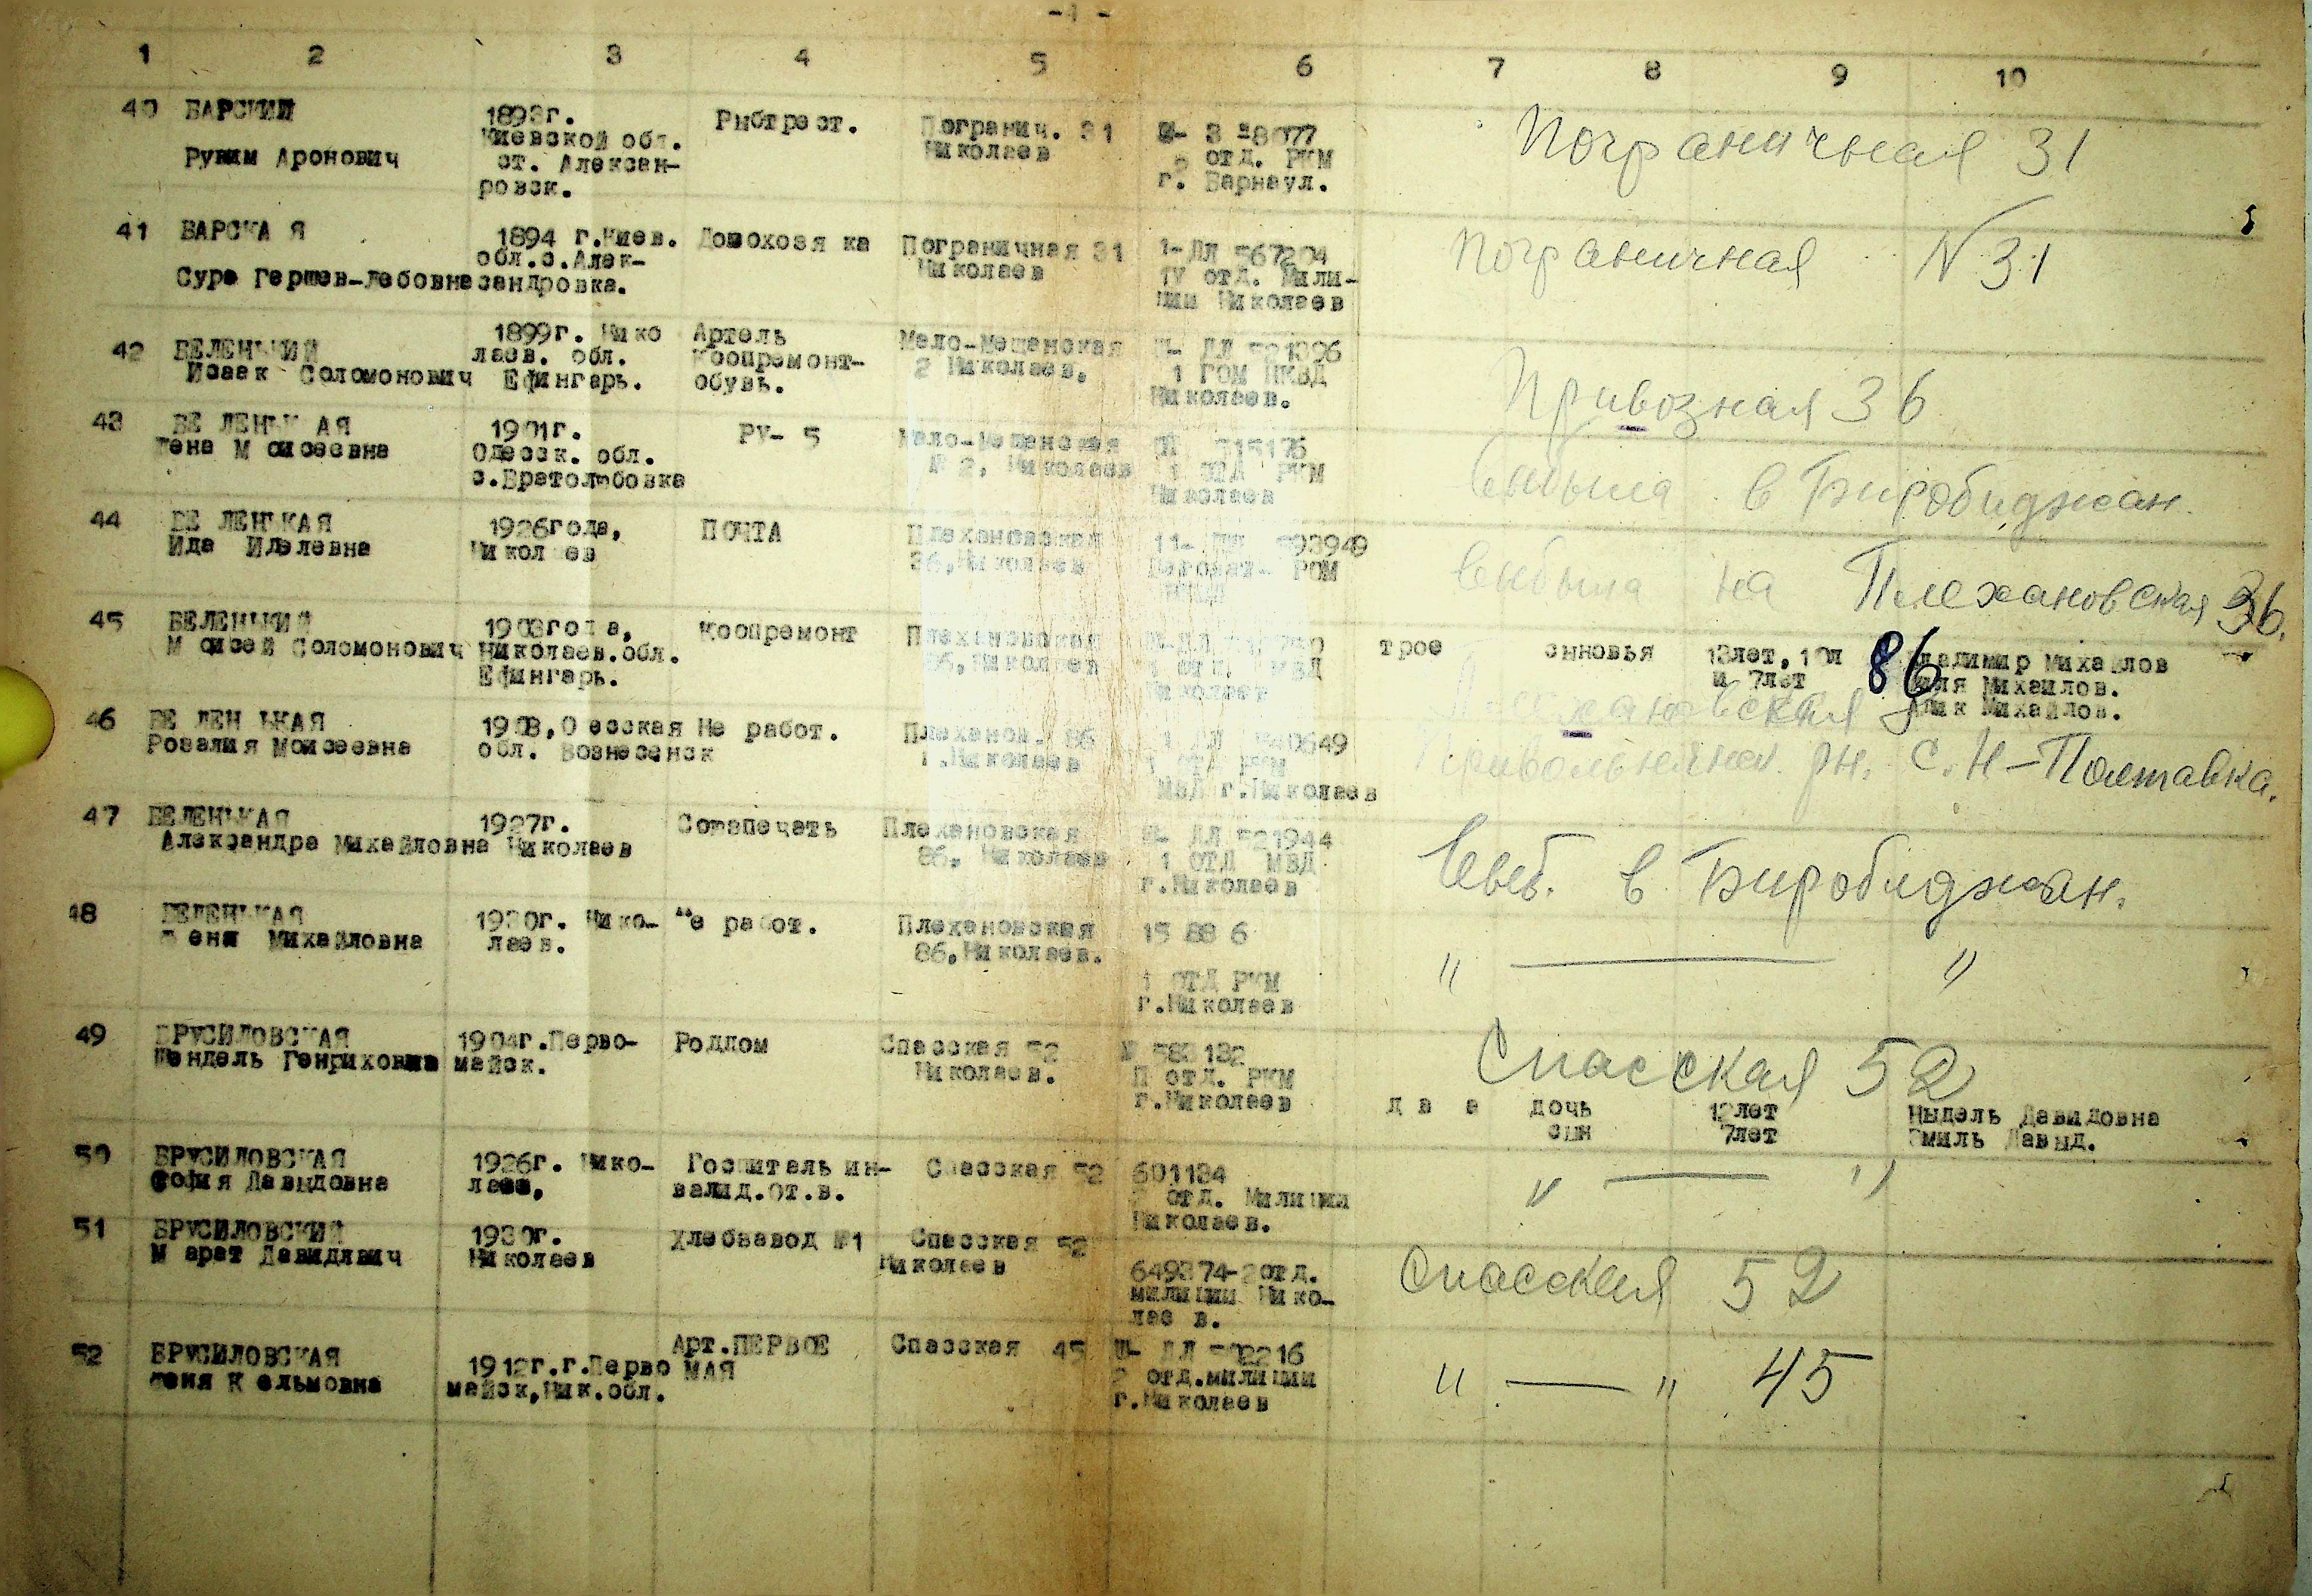 1 2 3 4 5 6 7 8 9 10
40 БАРСКИЙ
Рувим Аронович
1893г.
Киевской обл.
ст. Алексан-
ровск.
Рыбтрест.
Погранич. 31
Николаев
отд. РКМ
г. Барнаул.
Пограничная 31
41 БАРСКА Я
Сура Гершев-Лебовна
1894 г.Киев.
обл.с.Алек-
сандровка.
Домохозя ка
Пограничная 31
Николаев
1-ЛЛ 567204
1У отд. Мили-
ции Николаев
Пограничная N 31
42 БЕЛЕНЬКИЙ
Исаак Соломонович
1899г. Нико
лаев. обл.
Ефингарь.
Артель
Коопремонт-
обувь.
Мало-Мещанская
2 Николаев.
1 ГОМ НКВД
Николаев.
Привозная 36
43 БЕ ЛЕНЬК АЯ
М оисеевна
1901г.
Одесск. обл.
с.Братолюбовка
РУ- 5
Мало-Мещанская
№ 2, Николаев
1 ОТД РКМ
Николаев
выбыла в Биробиджан.
44 БЕ ЛЕНЬКАЯ
Ида Идэлевна
1926года,
Никол ев
ПОЧТА
Плехановская
36,Николаев
РОМ
выбыла на Плехановская 36.
45 БЕЛЕНЬКИЙ
М оисей Соломонович
1903года,
Николаев.обл.
Ефингарь.
Коопремонт
Плехановская
86,Николаев
1 отд.
Николаев
трое сыновья 13лет,10л
и 7лет
Владимир Михайлов
Михайлов.
Алик Михайлов.
Плехановская 86
46 БЕ ЛЕН ЬКАЯ
Розалия Моисеевна
1903,О есская
обл. Вознесенск
Не работ.
Плеханов. 86
Г.Николаев
1 ОТД РКМ
МВД г.Николаев
рн. с. Н-Полтавка.
47 БЕЛЕНЬКАЯ
Александра Михайловна
1927г.
Николаев
Союзпечать
Плехановская
86, Николаев
Ш- ЛЛ 521944
1 ОТД МВД
г.Николаев
Выб. в Биробиджан.
48 БЕЛЕНЬКАЯ
Михайловна
1930г. Нико-
лаев.
Не работ.
Плехановская
86,Николаев.
15 88 6
1 ОТД РКМ
г.Николаев
" — "
49 БРУСИЛОВСКАЯ
Шендель Генриховна
1904г.Перво-
майск.
Родлом
Спасская 52
Николаев.
№ 583182
П отд. РКМ
г.Николаев
Спасская 52
д в а дочь 12лет Ныдель Давидовна
сын 7лет Эмиль Давыд.
50 БРУСИЛОВСКАЯ
София Давыдовна
1926г. Нико-
лаев,
Госпиталь ин-
валид.От.в.
Спасская 52
601184
отд. Милиции
Николаев.
" — "
51 БРУСИЛОВСКИЙ
М арат Давидович
1930г.
Николаев
Хлебзавод №1
Спасская 52
Николаев
649374-2отд.
милиции Нико-
лае в.
Спасская 52
52 БРУСИЛОВСКАЯ
Женя К ельмовна
1912г.г.Перво
майск,Ник.обл.
Арт.ПЕРВОЕ
МАЯ
Спасская 45
Ш- ЛЛ 502216
2 отд.милиции
г.Николаев
" — " 45